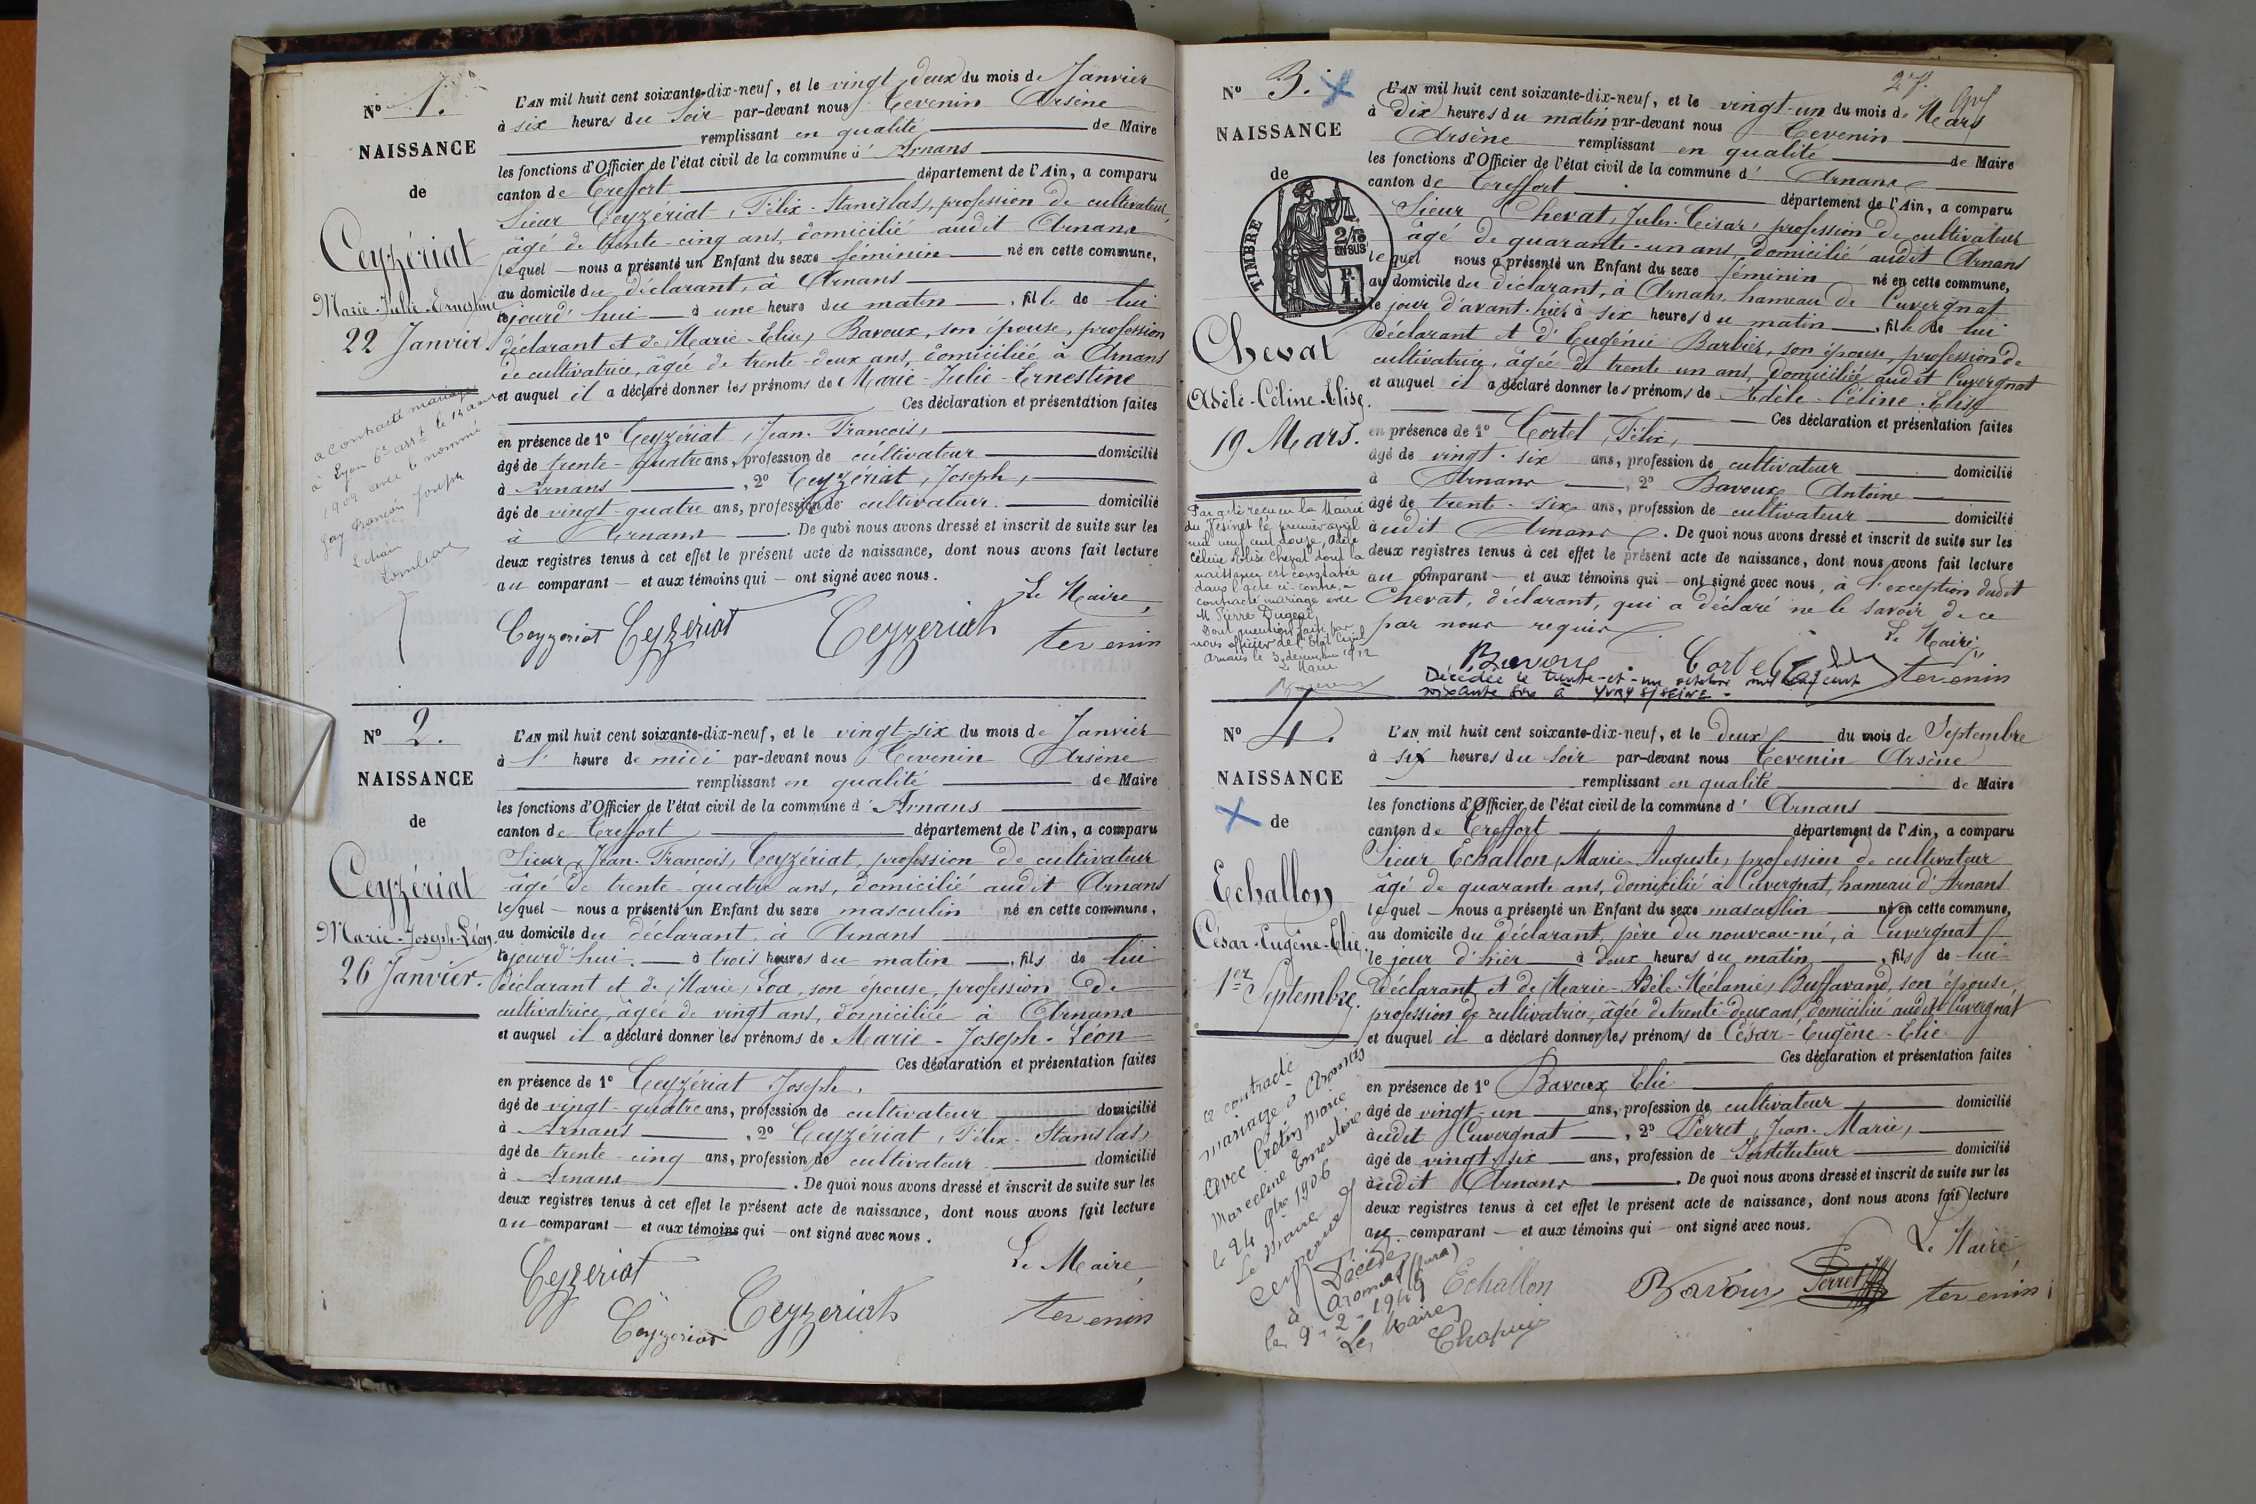 N° 1.
NAISSANCE
de
Ceyzériat
Marie-Julie-Ernestine
22 Janvier.
a contracté mariage
à Lyon 6e arrt le 14 aout
1902 avec le nommé
Joseph
L'AN mil huit cent soixante-dix-neuf, et le vingt-deux du mois de Janvier
à six heures du Soir par-devant nous Tevenin Arsène
remplissant en qualité de Maire
les fonctions d'Officier de l'état civil de la commune d' Arnans
canton de Treffort département de l'Ain, a comparu
Sieur Ceyzériat, Félix-Stanislas, profession de cultivateur,
âgé de trente-cinq ans, domicilié audit Arnans
lequel nous a présenté un Enfant du sexe féminin né en cette commune,
au domicile du déclarant, à Arnans
cejourd'hui à une heure du matin, fille de lui
déclarant et de Marie-Elise Bavoux, son épouse, profession
de cultivatrice, âgée de trente-deux ans, domiciliée à Arnans
et auquel il a déclaré donner les prénoms de Marie-Julie-Ernestine
Ces déclaration et présentation faites
en présence de 1° Ceyzériat, Jean-François,
âgé de trente-quatre ans, profession de cultivateur domicilié
à Arnans, 2° Ceyzériat, Joseph,
âgé de vingt-quatre ans, profession de cultivateur domicilié
à Arnans. De quoi nous avons dressé et inscrit de suite sur les
deux registres tenus à cet effet le présent acte de naissance, dont nous avons fait lecture
au comparant et aux témoins qui ont signé avec nous.
Le Maire,
Ceyzeriat Ceyzeriat Ceyzeriat tevenin
N° 2.
NAISSANCE
de
Ceyzériat
Marie-Joseph-Léon.
26 Janvier.
L'AN mil huit cent soixante-dix-neuf, et le vingt-six du mois de Janvier
à l' heure de midi par-devant nous Tevenin Arsène
remplissant en qualité de Maire
les fonctions d'Officier de l'état civil de la commune d' Arnans
canton de Treffort département de l'Ain, a comparu
Sieur Jean-François, Ceyzériat, profession de cultivateur
âgé de trente-quatre ans, domicilié audit Arnans
lequel nous a présenté un Enfant du sexe masculin né en cette commune,
au domicile du déclarant, à Arnans
cejourd'hui à trois heures du matin, fils de lui
déclarant et de Marie, son épouse, profession de
cultivatrice, âgée de vingt ans, domiciliée à Arnans
et auquel il a déclaré donner les prénoms de Marie-Joseph-Léon
Ces déclaration et présentation faites
en présence de 1° Ceyzériat Joseph,
âgé de vingt-quatre ans, profession de cultivateur domicilié
à Arnans, 2° Ceyzériat, Félix-Stanislas,
âgé de trente-cinq ans, profession de cultivateur domicilié
à Arnans. De quoi nous avons dressé et inscrit de suite sur les
deux registres tenus à cet effet le présent acte de naissance, dont nous avons fait lecture
au comparant et aux témoins qui ont signé avec nous.
Le Maire,
Ceyzeriat
Ceyzeriat Ceyzeriat tevenin
27.
N° 3.
NAISSANCE
de
TIMBRE
2/10
EN SUS
Chevat
Adèle-Céline-Elise.
19 Mars.
Par acte reçu en la Mairie
du Vésinet le premier avril
mil neuf cent douze, Adèle
Céline Elise Chevat dont la
naissance est constatée
dans l'acte ci-contre, a
contracté mariage avec
M Pierre Dugeat
Dont mention faite par
nous officier de l'Etat Civil
Arnans le 3 décembre 1912
Le Maire
L'AN mil huit cent soixante-dix-neuf, et le vingt-un du mois de Mars
à Dix heures du matin par-devant nous Tevenin
Arsène remplissant en qualité de Maire
les fonctions d'Officier de l'état civil de la commune d' Arnans
canton de Treffort département de l'Ain, a comparu
Sieur Chevat, Jules-César, profession de cultivateur
âgé de quarante-un ans, domicilié audit Arnans
lequel nous a présenté un Enfant du sexe féminin né en cette commune,
au domicile du déclarant, à Arnans, hameau de Cuvergnat
le jour d'avant-hier à six heures du matin, fille de lui
déclarant et d'Eugénie Barbier, son épouse, profession de
cultivatrice, âgée de trente un ans, domiciliée audit Cuvergnat
et auquel il a déclaré donner les prénoms de Adèle-Céline-Elise
Ces déclaration et présentation faites
en présence de 1° Cortet, Félix,
âgé de vingt-six ans, profession de cultivateur domicilié
à Arnans, 2° Bavoux Antoine
âgé de trente-six ans, profession de cultivateur domicilié
audit Arnans. De quoi nous avons dressé et inscrit de suite sur les
deux registres tenus à cet effet le présent acte de naissance, dont nous avons fait lecture
au comparant et aux témoins qui ont signé avec nous, à l'exception dudit
Chevat, déclarant, qui a déclaré ne le savoir de ce
par nous requis.
Le Maire,
Bavoux Cortet tevenin
Décédée le trente-et-un octobre mil neuf cent
soixante six à IVRY S/SEINE.
N° 4.
NAISSANCE
de
Echallon
César-Eugène-Elie
1er
Septembre.
a contracté
mariage à Aromas
avec Crétin Marie
Marceline Ernestine
le 24 9bre 1906
Le Maire
Ceyzeriat
Décédé
à Aromas (Jura)
le 9-2-1949
Le Maire
Chapuis
L'AN mil huit cent soixante-dix-neuf, et le Deux du mois de Septembre
à six heures du Soir par-devant nous Tevenin Arsène
remplissant en qualité de Maire
les fonctions d'Officier de l'état civil de la commune d' Arnans
canton de Treffort département de l'Ain, a comparu
Sieur Echallon, Marie-Auguste, profession de cultivateur
âgé de quarante ans, domicilié à Cuvergnat, hameau d'Arnans
lequel nous a présenté un Enfant du sexe masculin né en cette commune,
au domicile du déclarant, père du nouveau-né, à Cuvergnat
le jour d'hier à deux heures du matin, fils de lui
déclarant et de Marie-Adèle-Mélanie, Buffavand, son épouse,
profession de cultivatrice, âgée de trente-deux ans, domiciliée audit Cuvergnat
et auquel il a déclaré donner les prénoms de César-Eugène-Elie
Ces déclaration et présentation faites
en présence de 1° Bavoux Elie
âgé de vingt-un ans, profession de cultivateur domicilié
audit Cuvergnat, 2° Perret, Jean-Marie,
âgé de vingt-six ans, profession de Instituteur domicilié
audit Arnans. De quoi nous avons dressé et inscrit de suite sur les
deux registres tenus à cet effet le présent acte de naissance, dont nous avons fait lecture
au comparant et aux témoins qui ont signé avec nous.
Le Maire,
Echallon Bavoux Perret tevenin